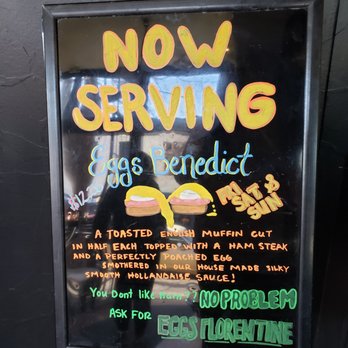 NOW
SERVING
Eggs Benedict
FRI
SAT &
SUN
A TOASTED ENGLISH MUFFIN CUT
IN HALF EACH TOPPED WITH A HAM STEAK
AND A PERFECTLY POACHED EGG
SMOTHERED IN OUR HOUSE MADE SILKY
SMOOTH HOLLANDAISE SAUCE!
You Dont like Ham?? NO PROBLEM
ASK FOR EGGS FLORENTINE